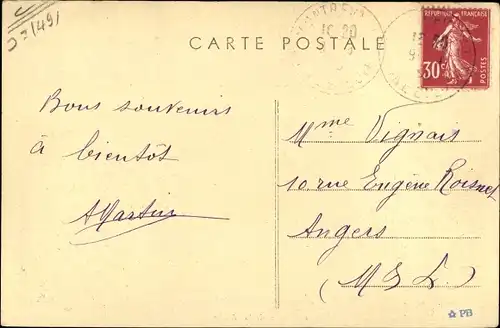 D=1491
CARTE POSTALE
REPUBLIQUE FRANÇAISE
30c
POSTES
Bons souvenirs
à bientôt
AMartin
Mme Vignais
10 rue Eugène Boisnet
Angers
(M & L)
PB